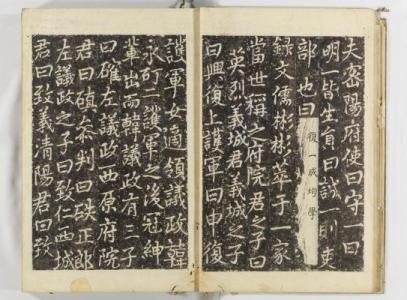 夫密陽府使曰守一曰
明一皆生員曰誠一則吏
部也曰復一成均學
録文儒彬彬萃于一家
當世稱之府院君之子曰
英烈義城君義城之子
曰興復上護軍曰申復
護軍女適領議政韓
永矴二護軍之後冠紳
輩出而韓議政有三子
曰確左議政西原府院
君曰磌叅判曰硤正郎
左議政之子曰致仁西城
君曰致義清陽君曰致